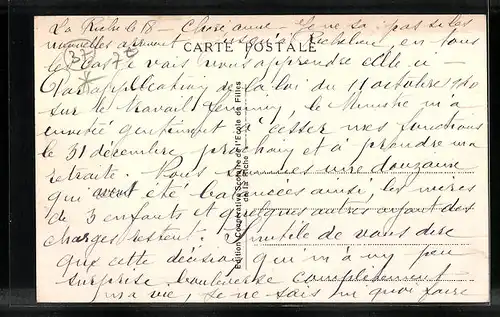 La Riche le 18 – Chère amie – Je ne sais pas si les
nouvelles arrivent jusqu'à Richelieu, en tous
CARTE POSTALE
37
le cas je vais vous apprendre celle-ci –
Par application de la loi du 11 octobre 1940
sur le travail féminin, le Ministre m'a
invitée gentiment à cesser mes fonctions
le 31 décembre prochain et à prendre ma
retraite. Nous sommes une douzaine
qui avons été balancées ainsi, les mères
de 3 enfants et quelques autres ayant des
charges restent. Inutile de vous dire
que cette décision qui m'a un peu
surprise bouleverse complètement
ma vie, je ne sais ni quoi faire
Edition Coopérative Scolaire de l'Ecole de Filles
de la Riche